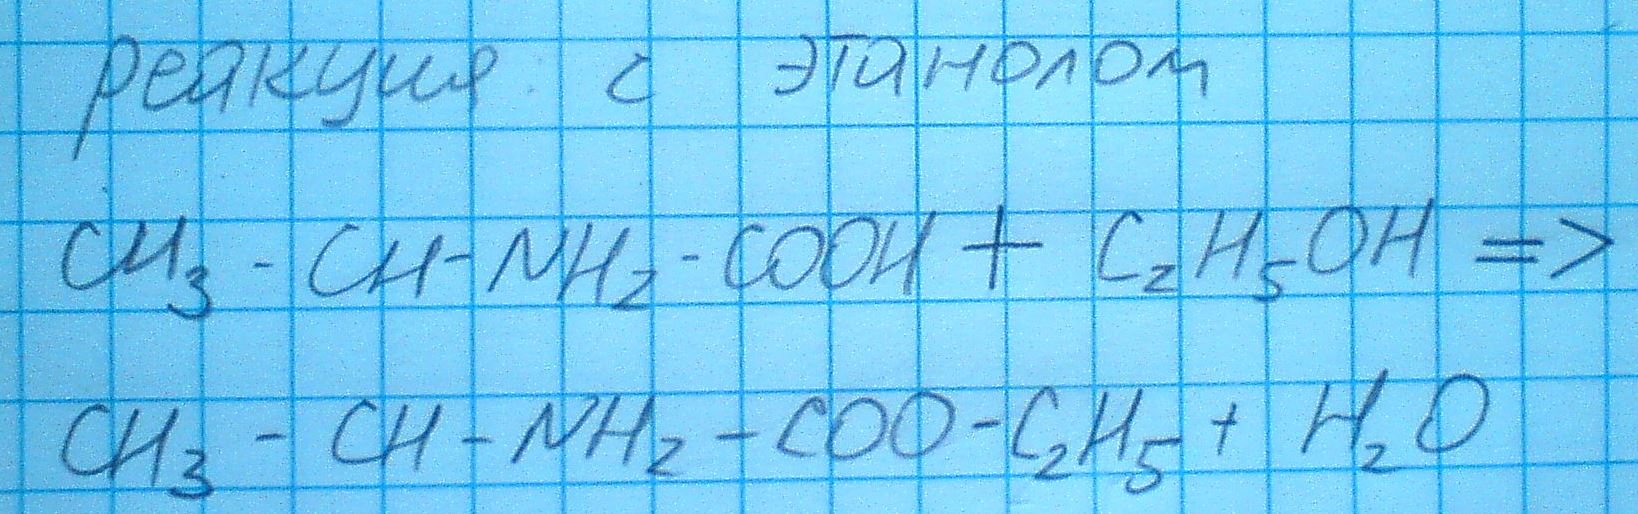 реакция с этанолом
CH₃ - CH - NH₂ - COOH + C₂H₅OH =>
CH₃ - CH - NH₂ - COO - C₂H₅ + H₂O